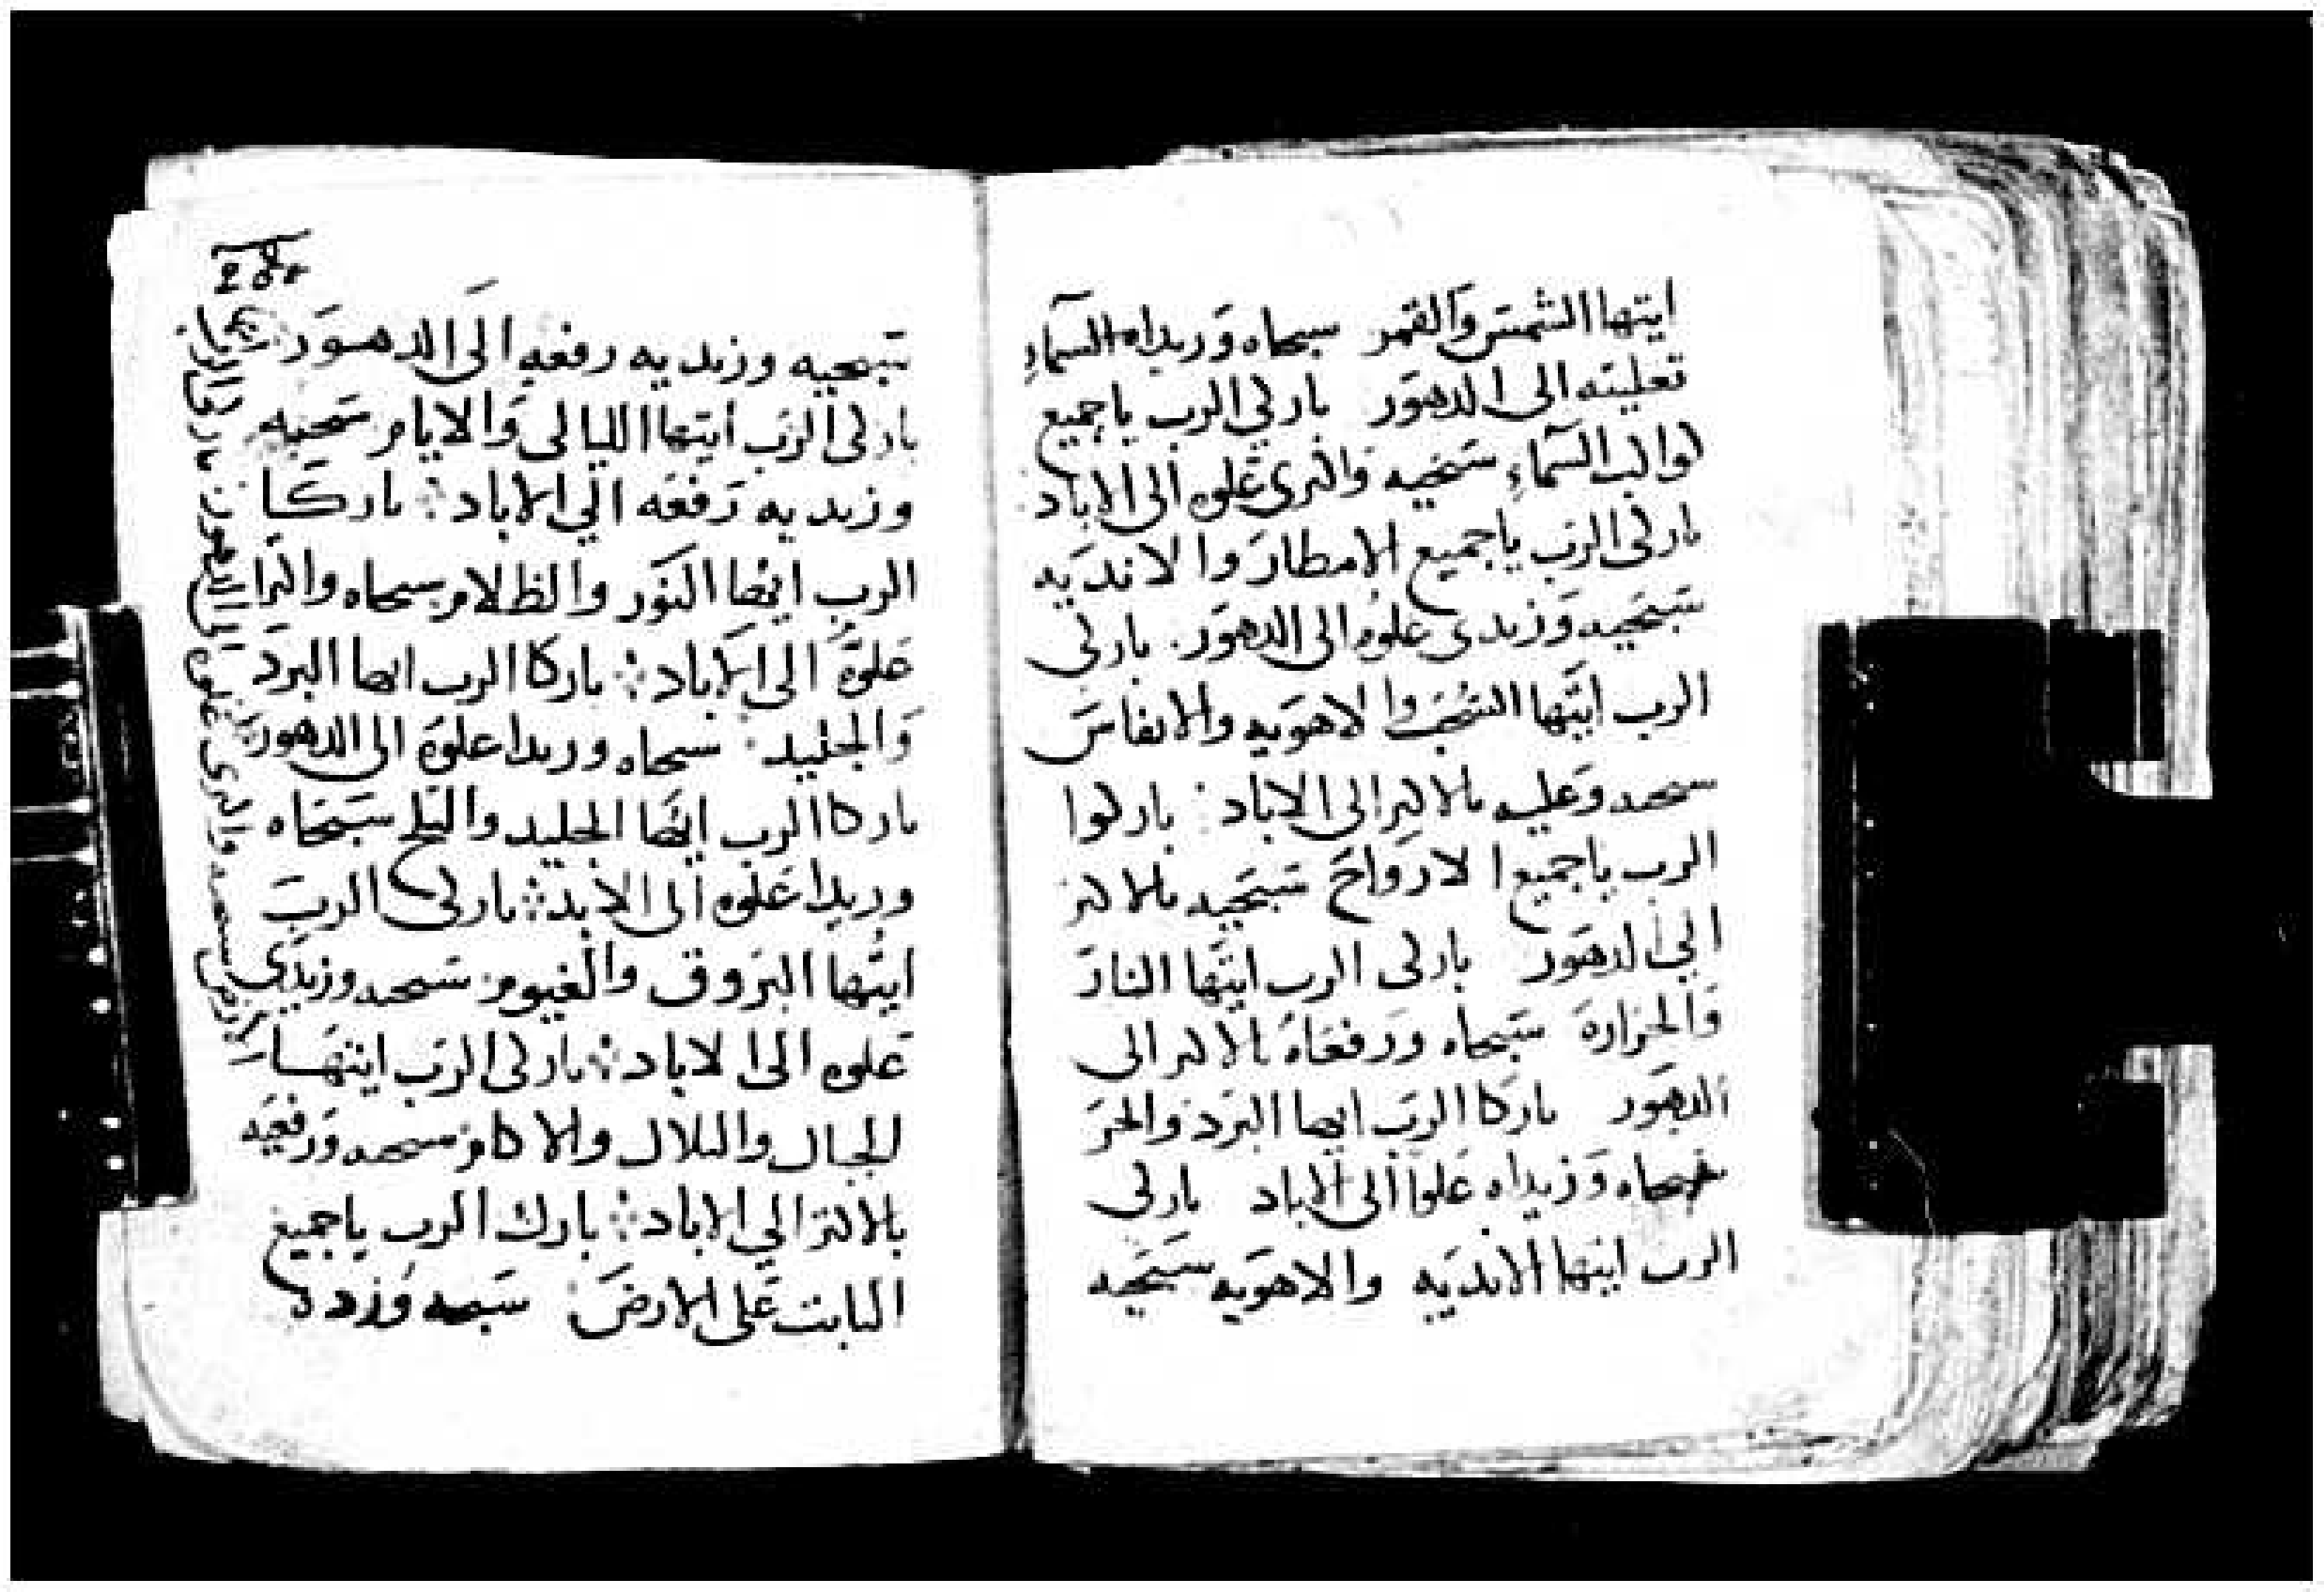 ايتها الشمس والقمر سبحاه وزيداه السماء
تعليته الى الدهور باركي الرب ياجميع
كواكب السماء سبحيه واكثري علوه الى الاباد
باركي الرب ياجميع الامطار والانديه
سبحيه وزيدي علوه الى الدهور. باركي
الرب ايتها السحب والاهويه والانفاس
سبحيه وعليه بالاكثر الى الاباد: باركوا
الرب ياجميع الارواح سبحيه بالاكثر
الى الدهور باركي الرب ايتها النار
والحراره سبحاه ورفعاه بالاكثر الى
الدهور باركا الرب ايها البرد والحر
سبحاه وزيداه علوا الى الاباد باركي
الرب ايتها الانديه والاهويه سبحيه
سبحيه وزيديه رفعه الى الدهور
باركي الرب ايتها الليالي والايام سبحيه
وزيديه رفعه الي الاباد ⁘ باركا
الرب ايها النور والظلام سبحاه واكثرا
علوه الى الاباد ⁘ باركا الرب ايها البرد
والجليد. سبحاه وزيدا علوه الى الدهور
باركا الرب ايها الجليد والثلج سبحاه
وزيدا علوه الى الابد ⁘ باركي الرب
ايتها البروق والغيوم سبحيه وزيدي
علوه الى الاباد ⁘ باركي الرب ايتها
الجبال والتلال والاكام سبحيه ورفعيه
بالاكثر الي الاباد ⁘ بارك الرب ياجميع
النابت على الارض سبحه وزد
الارض سبحيه واكثري علوه الى الدهور